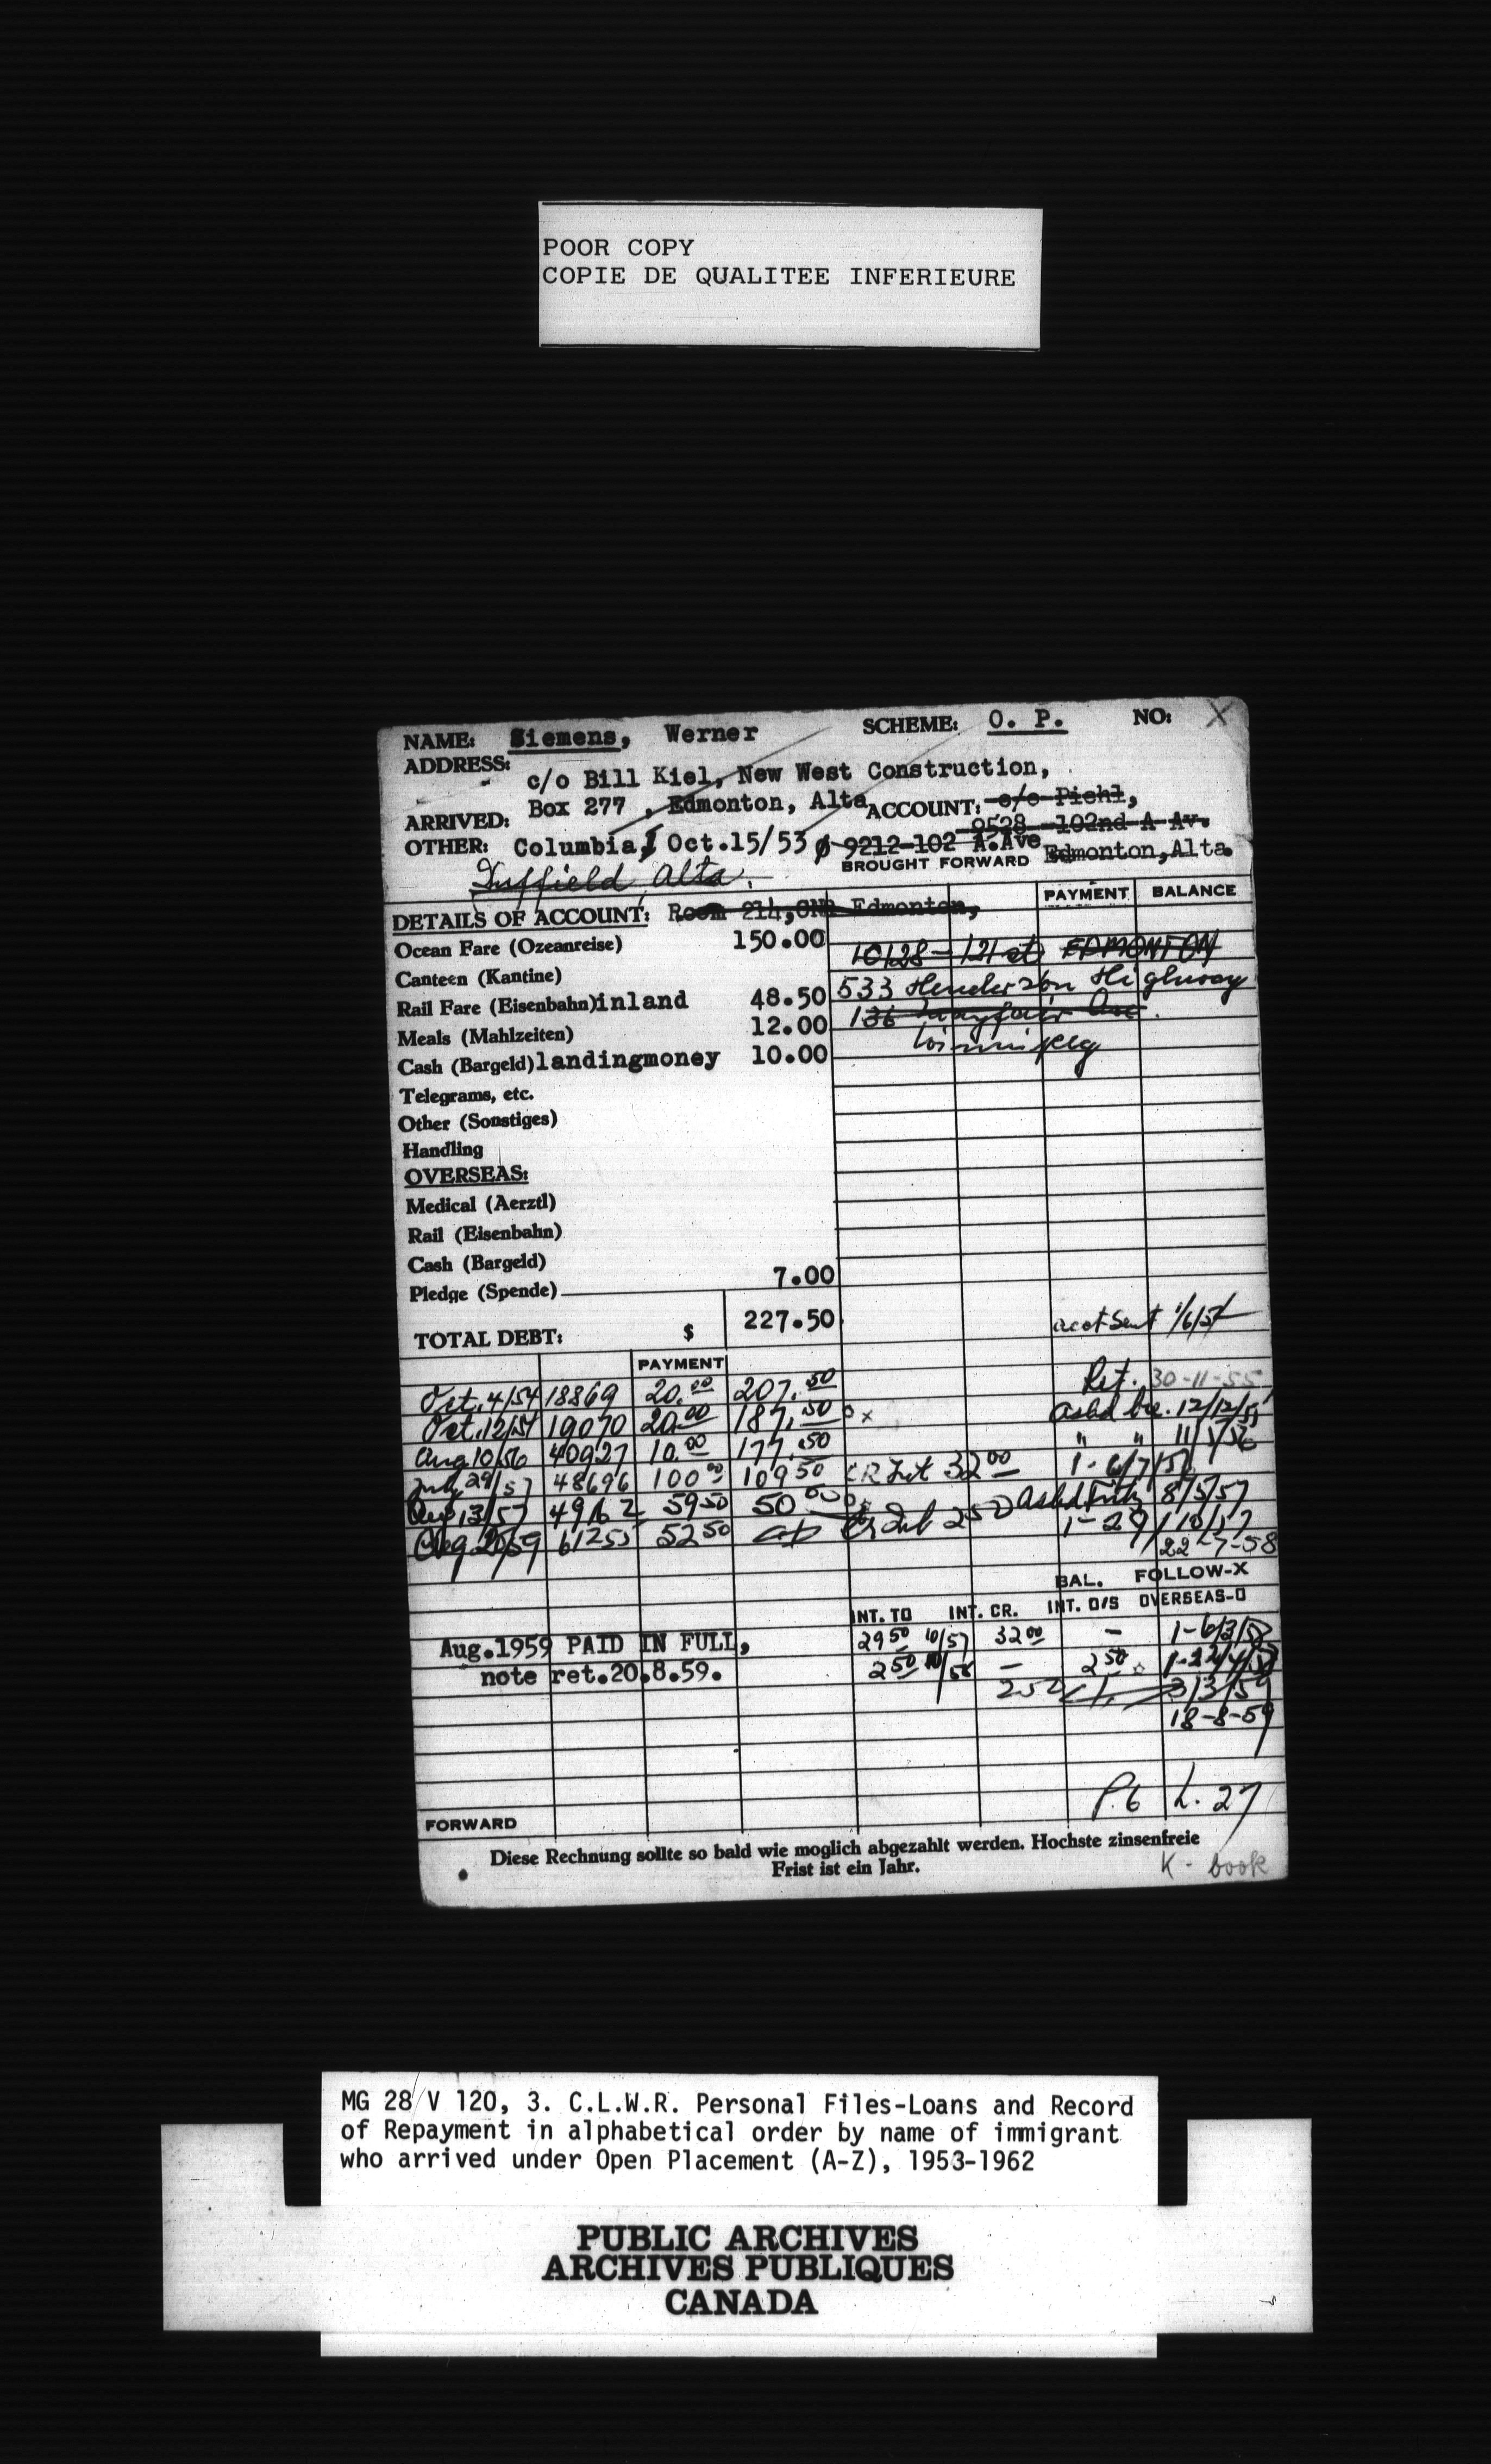 POOR COPY
COPIE DE QUALITEE INFERIEURE
NAME: Siemens, Werner SCHEME: O. P. NO: X
ADDRESS: c/o Bill Kiel, New West Construction,
Box 277, Edmonton, Alta ACCOUNT: c/o Piehl,
ARRIVED: 9528 102nd A Av.
OTHER: Columbia, Oct.15/53 9212-102 A.Ave Edmonton,Alta.
BROUGHT FORWARD
Duffield Alta.
PAYMENT BALANCE
DETAILS OF ACCOUNT: Room 214,CNR Edmonton,
Ocean Fare (Ozeanreise) 150.00
10128 - 121 st EDMONTON
Canteen (Kantine)
533 Henderson Highway
Rail Fare (Eisenbahn)inland 48.50
136 Mayfair Ave.
Meals (Mahlzeiten) 12.00
Winnipeg
Cash (Bargeld)landingmoney 10.00
Telegrams, etc.
Other (Sonstiges)
Handling
OVERSEAS:
Medical (Aerztl)
Rail (Eisenbahn)
Cash (Bargeld)
Pledge (Spende) 7.00
TOTAL DEBT: $ 227.50
acct sent
PAYMENT
Oct. 4/54 18869 20.00 207.50 Ret. 30-11-55
Oct. 12/54 19070 20.00 187.50 x 12/12/55
Aug 10/56 40927 10.00 177.50 " " 11/1/56
July 29/57 48696 100 00 109 50 CR Int 32 00
59 50 50 00 8/5/57
Aug 20/59 61255 52 50 Cr Int 2 50
22-7-58
BAL. FOLLOW-X
INT. TO INT. CR. INT. O/S OVERSEAS-O
Aug.1959 PAID IN FULL, 29 50 10/57 32 00 -
note ret.20.8.59. 2 50 10/58 - 2 50
2 50 3/3/59
18-8-59
P.6 L. 27
FORWARD
Diese Rechnung sollte so bald wie moglich abgezahlt werden. Hochste zinsenfreie
Frist ist ein Jahr.
K - book
MG 28 V 120, 3. C.L.W.R. Personal Files-Loans and Record
of Repayment in alphabetical order by name of immigrant
who arrived under Open Placement (A-Z), 1953-1962
PUBLIC ARCHIVES
ARCHIVES PUBLIQUES
CANADA